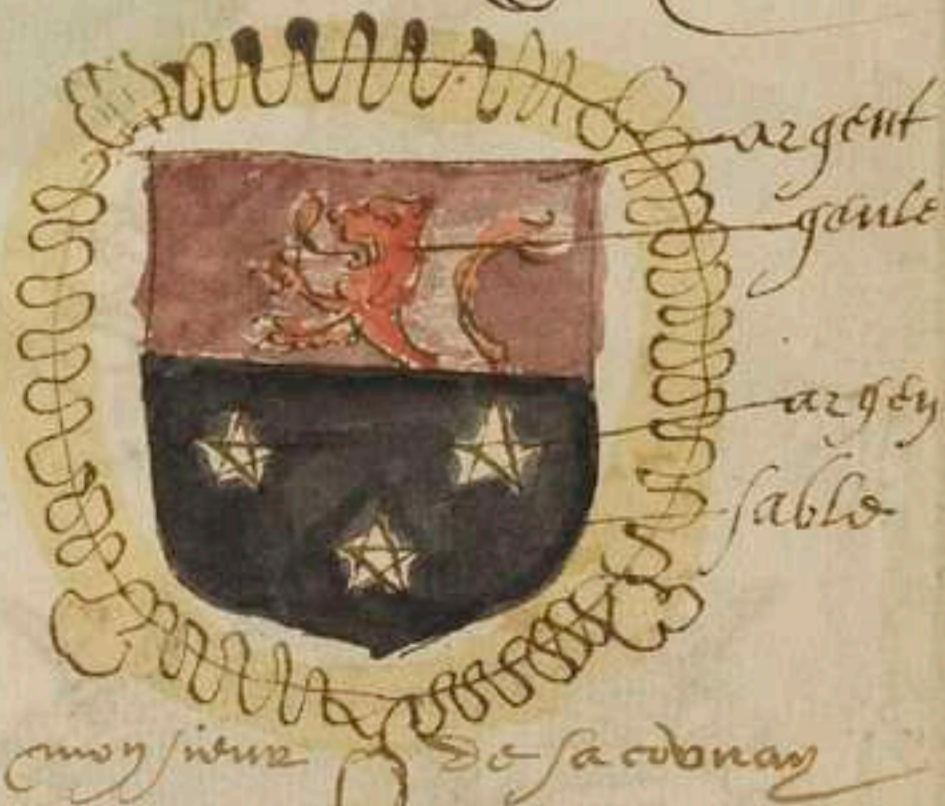 argent
geule
argen
sable
monsieur de sacconay